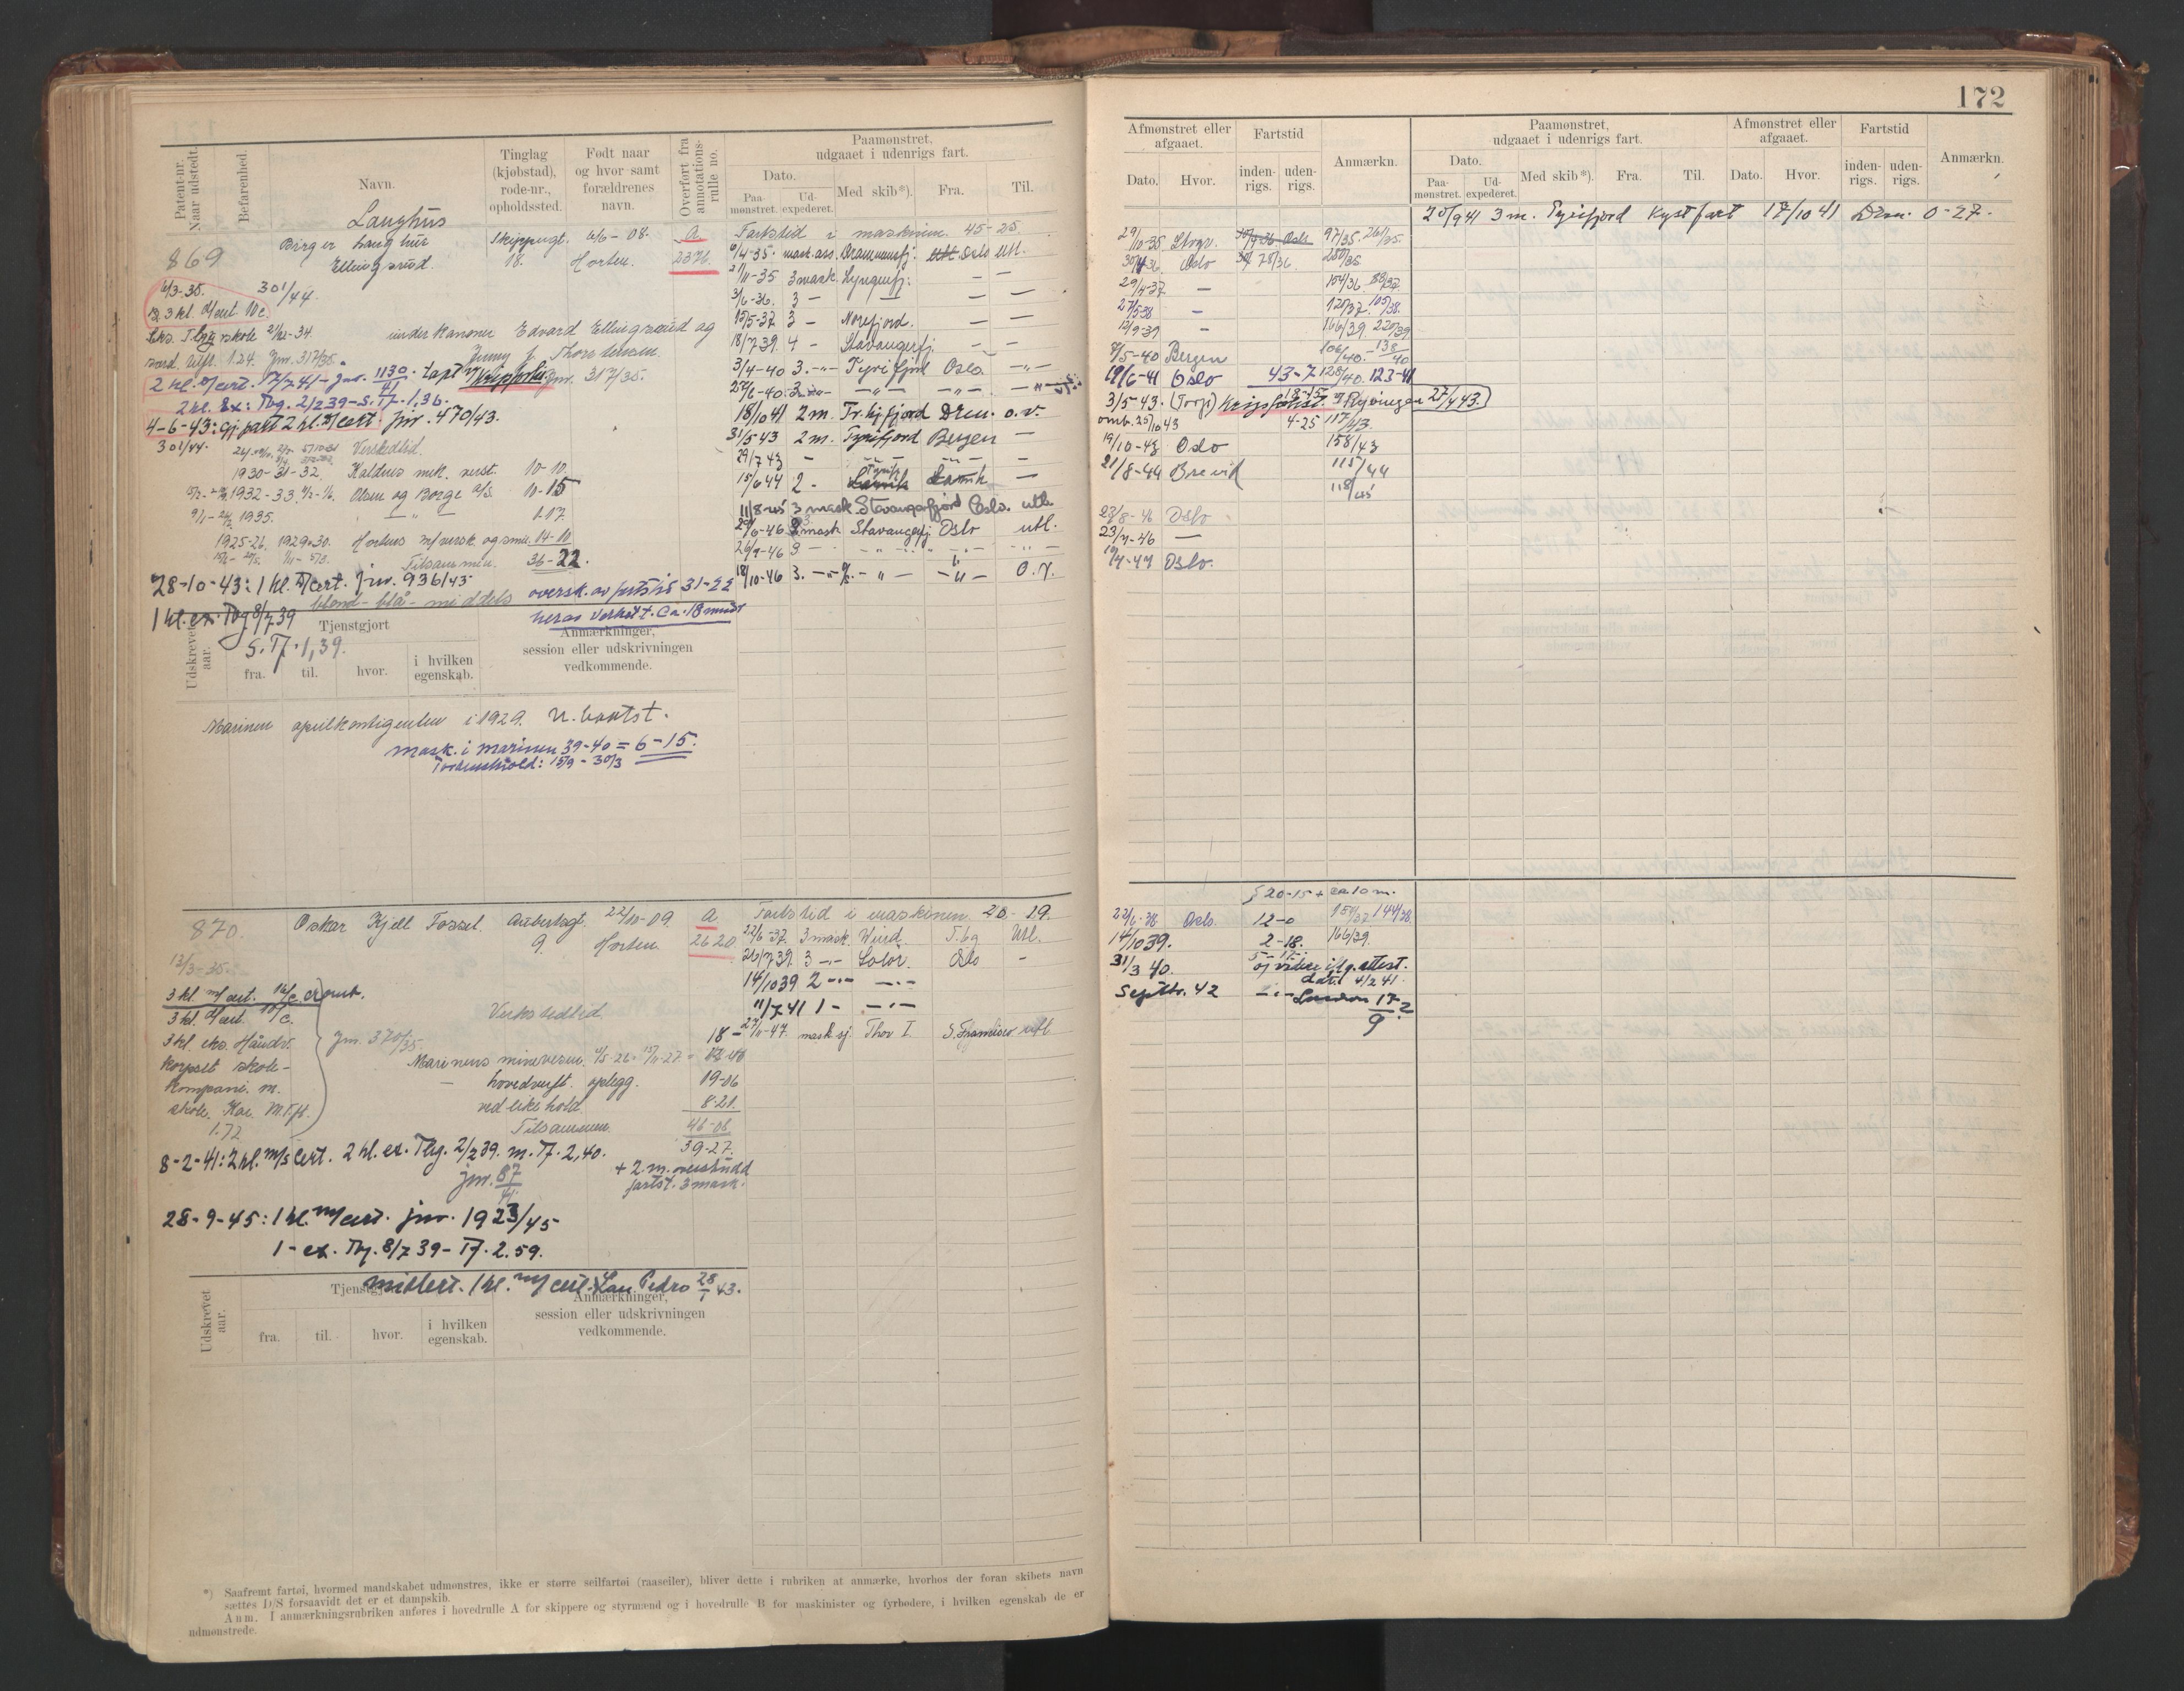 172
Patent-nr. Naar udstedt.
Befarenhed.
Navn.
Tinglag (kjøbstad), rode-nr., opholdssted.
Født naar og hvor samt forældrenes navn.
Overført fra annotations-rulle no.
Paamønstret, udgaaet i udenrigs fart.
Dato.
Paa-mønstret. Ud-expederet.
Med skib*).
Fra.
Til.
Langhus
869
Birger Langhus
Ellingsrud.
Skippergt. 18.
6/6-08. Horten.
A 2376.
6/3-35.
301/44.
3 kl. M/cert.
underkanoner Edvard Ellingsrud og
Jenny J. Thorstensen.
Jnr. 317/35.
2 kl. M/cert. 17/7 41 - jnr. 1130/41. tapt v/krigsforlis
2 kl. Ex: Tbg. 2/2 39 - S. Tf. 1,36.
4-6-43: Gjpatt 2 kl. M/cert jnr. 470/43.
301/44.
Verkstedtid.
1930-31-32. Kaldnes mek. verst. 10-10.
1932-33. Olsen og Borge A/S. 10-15
1935. 1-17
1925-26, 1929-30. Hortens m/versk. og smie. 14-10
Tilsammen. 36-22.
28-10-43: 1 kl. M/cert. jnr. 936/43
blond - blå - middels
oversk. av fartstid 31-22
herav verkst.t. ca. 18 mndr
1 kl. ex. Tbg 8/7 39
S. Tf. 1,39.
Fartstid i maskinen 45-25
6/4-35. mask.ass. Drammensfj. Oslo Utl.
21/11-35 3 mask. Lyngenfj. — —
3/6-36. 3 — — — —
15/5-37 3 — Norefjord. — —
18/7 39. 4 - Stavangerfj. - -
3/4-40 3. -"- Tyrifjord Oslo. -"-
18/10 41 2 m. Tyrifjord Drm. o.v.
31/5 43 2 m. Tyrifjord Bergen —
29/7 43 - -"- -"- —
15/6 44 2 - Larvik —
11/8-45 3 mask Stavangerfjord Oslo. utl.
29/6-46 3 mask Stavangerfj. Oslo utl.
26/9-46 3 — -"- -"- -"-
18/10-46 3. -"- -"- -"- O.V.
Udskrevet aar.
Tjenstgjort
fra. til. hvor. i hvilken egenskab.
Anmærkninger, session eller udskrivningen vedkommende.
Marinen aprilkontigenten i 1929. U. bantst.
mask. i marinen 39-40 = 6-15.
Tordenskiold: 15/9 - 30/3
Afmønstret eller afgaaet.
Fartstid
Anmærkn.
Paamønstret, udgaaet i udenrigs fart.
Afmønstret eller afgaaet.
Fartstid
Anmærkn.
Dato. Hvor. inden-rigs. uden-rigs.
Dato.
Paa-mønstret. Ud-expederet. Med skib*). Fra. Til. Dato. Hvor. inden-rigs. uden-rigs.
20/9 41 3 m. Tyrifjord Kystfart 17/10 41 Drm. 0-27.
29/10-35 Stvgr. 97/35. 261/35.
30/4 36. Oslo 78/36. 280/35
29/4-37 — 104/36 88/37.
27/5-38 - 120/37. 105/38.
12/9-39 — 166/39 220/39
9/5-40 Bergen 106/40. - 138/40
19/6-41 Oslo 43-7 128/40. 123-41
3/5-43. (Torp.) krigsforlist. v/ Ryvingen 27/4 43.
omb. 25/10 43 4-25 117/43.
19/10-43 Oslo 158/43
21/8-44 Brevik 115/44
118/45
23/8-46 Oslo
23/9-46 —
19/4-47 Oslo.
870.
Oskar Kjell Fossel.
Aubertsgt. 9.
22/10-09. Horten.
A 2620.
13/3-35.
3 kl. M/cert.
3 kl. eks. Håndv.
korpset skole-
kompani. m.
skole. Kar. M.Tf.
1.72
Jnr. 370/35
Verkstedtid
Marinens minevesen.
— hovedverft. oplegg. 19-06
vedlikehold. 8-21.
Tilsammen. 46-06
39-27.
+ 2 m. overskudd
fartst. 3 mask.
8-2-41: 2 kl. m/s Cert. 2 kl. ex. Tbg. 2/2 39. m. Tf. 2,40.
jnr. 87/41
28-9-45: 1 kl. m/cert. jnr. 1923/45
1 - ex. Tbg. 8/7 39 - Tf. 2.59.
midlert. 1 kl. m/cert. San Pedro 28/1 43.
Fartstid i maskinen 20-19.
22/6-37. 3 mask. Wind. T.bg Utl.
26/7 39. 3 -"- Solör. Oslo -
14/10 39 2 -"- -"-
11/7 41 1 - -"-
27/11-47. mask sj. Thor I. S. Francisco utl
20-15 + ca. 10 m.
22/6-38 Oslo. 12-0 151/37 144/38.
14/10 39. 2-18. 166/39.
31/3 40. 5-17
attest.
datert 4/2 41.
Septbr. 42 -"- London 17/9-?
Udskrevet aar.
Tjenstgjort
fra. til. hvor. i hvilken egenskab.
Anmærkninger, session eller udskrivningen vedkommende.
*) Saafremt fartøi, hvormed mandskabet udmønstres, ikke er større seilfartøi (raaseiler), bliver dette i rubriken at anmærke, hvorhos der foran skibets navn
sættes D/S forsaavidt det er et dampskib.
Anm. I anmærkningsrubriken anføres i hovedrulle A for skippere og styrmænd og i hovedrulle B for maskinister og fyrbødere, i hvilken egenskab de er
udmønstrede.